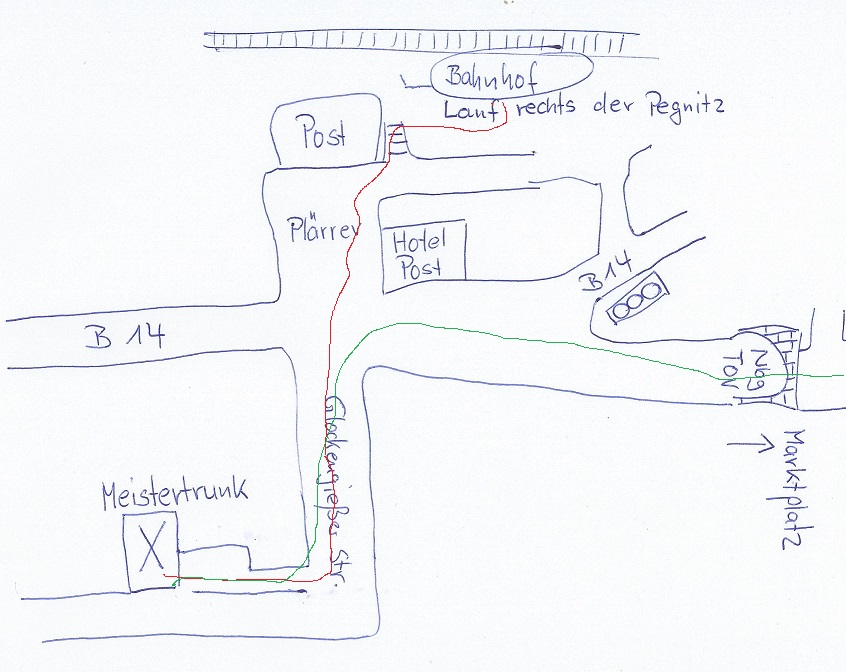 Bahnhof
Lauf rechts der Pegnitz
Post
Plärrer
Hotel
Post
B 14
B 14
Nbg
Tor
Marktplatz
Glockengießer Str.
Meistertrunk
X